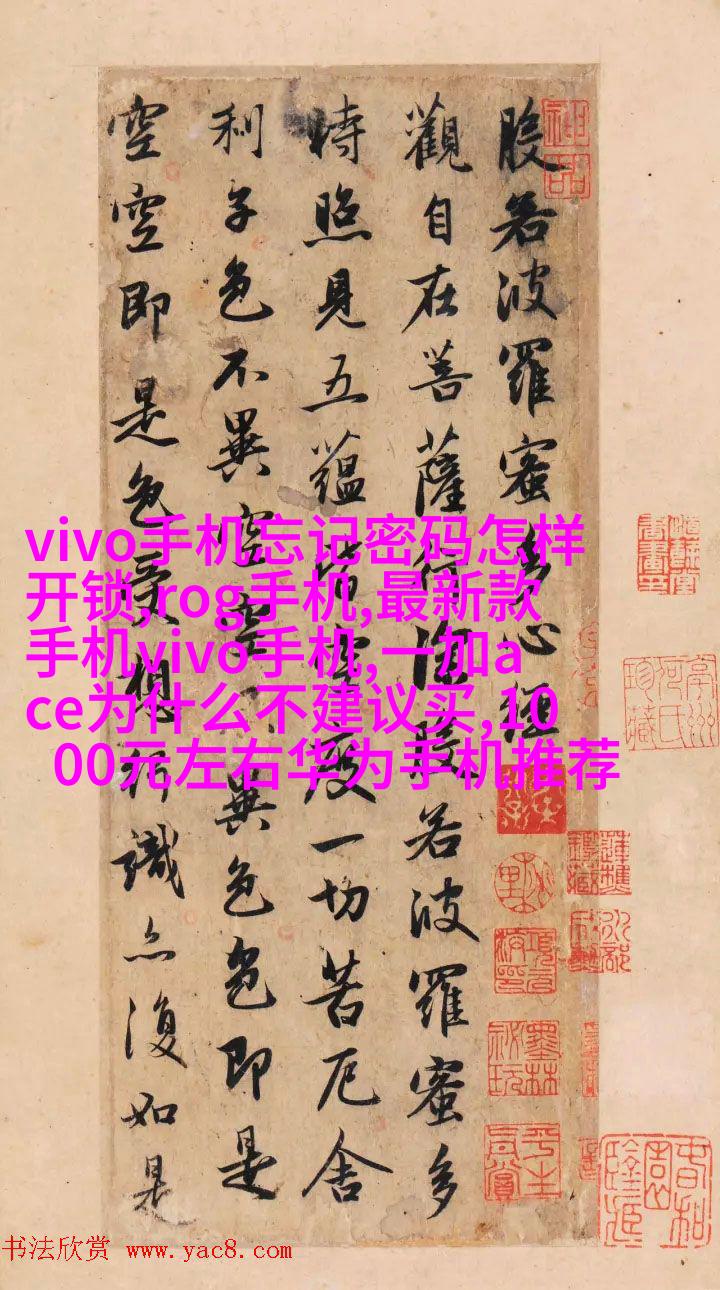 般若波羅蜜多心經
觀自在菩薩行深般若波羅蜜多
時照見五蘊皆空度一切苦厄舍
利子色不異空空不異色色即是
空空即是色受想行識亦復如是
神品
vivo手机忘记密码怎样
开锁,rog手机,最新款
手机vivo手机,一加a
ce为什么不建议买,10
00元左右华为手机推荐
书法欣赏 www.yac8.com